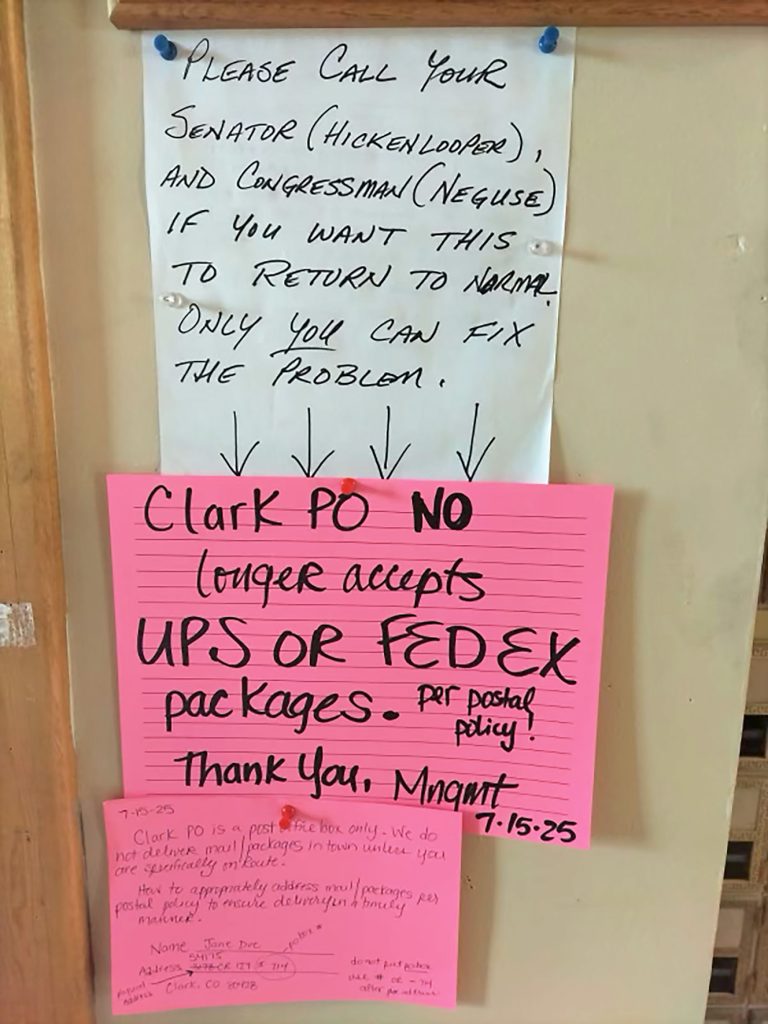 PLEASE CALL YOUR
SENATOR (HICKENLOOPER),
AND CONGRESSMAN (NEGUSE)
IF YOU WANT THIS
TO RETURN TO NORMAL.
ONLY YOU CAN FIX
THE PROBLEM.
Clark PO NO
longer accepts
UPS OR FEDEX
packages. per postal
policy!
Thank You, Mngmt
7-15-25
7-15-25
Clark PO is a post office box only. We do
not deliver mail/packages in town unless you
are specifically on Route.
How to appropriately address mail/packages per
postal policy to ensure delivery in a timely
manner.
Name Jane Doe
po box #
54175
Address CR 129 # 714
Physical address
Clark, CO 80428
do not put po box
use # or - 714
after